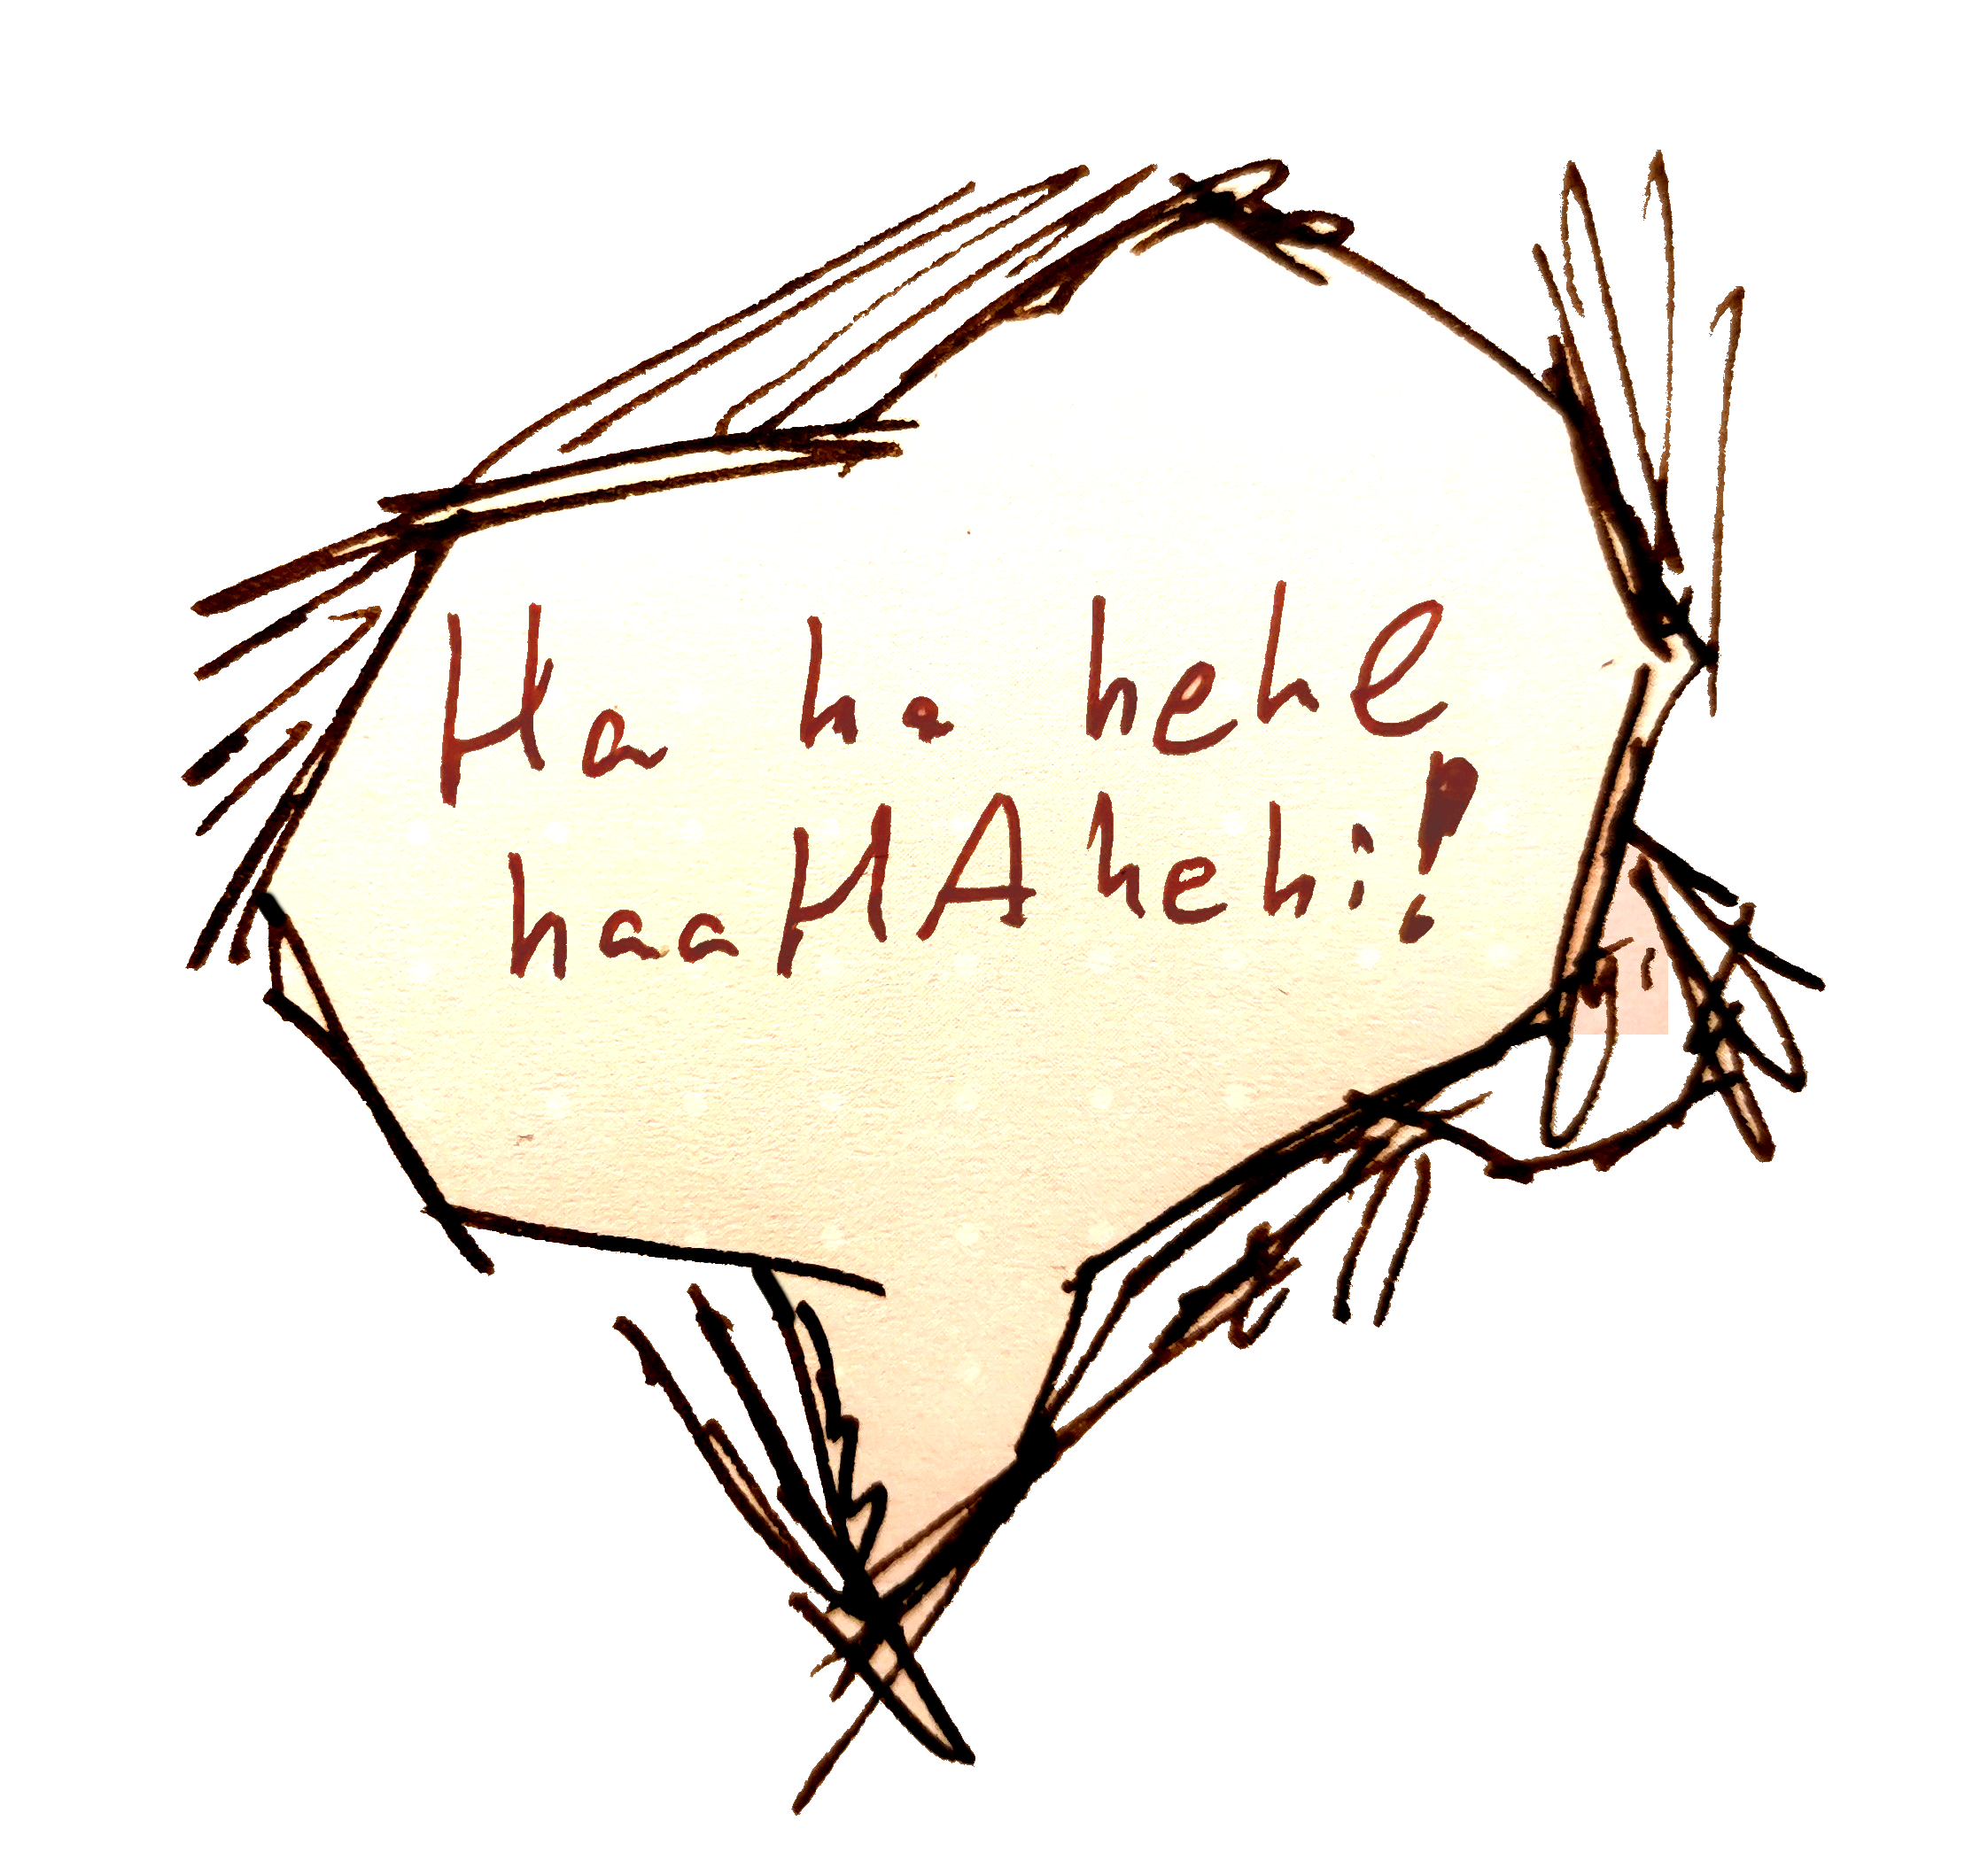 Ha ha hehe
haaHAhehi!